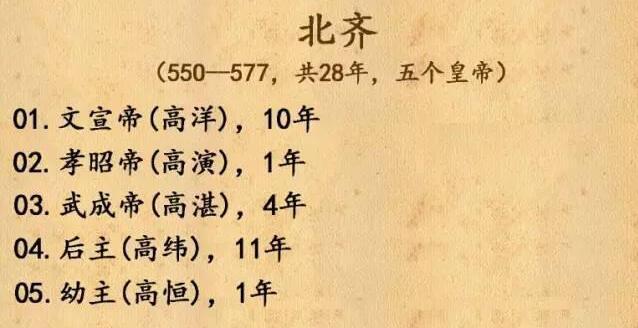 北齐
（550—577，共28年，五个皇帝）
01.文宣帝(高洋)，10年
02.孝昭帝(高演)，1年
03.武成帝(高湛)，4年
04.后主(高纬)，11年
05.幼主(高恒)，1年